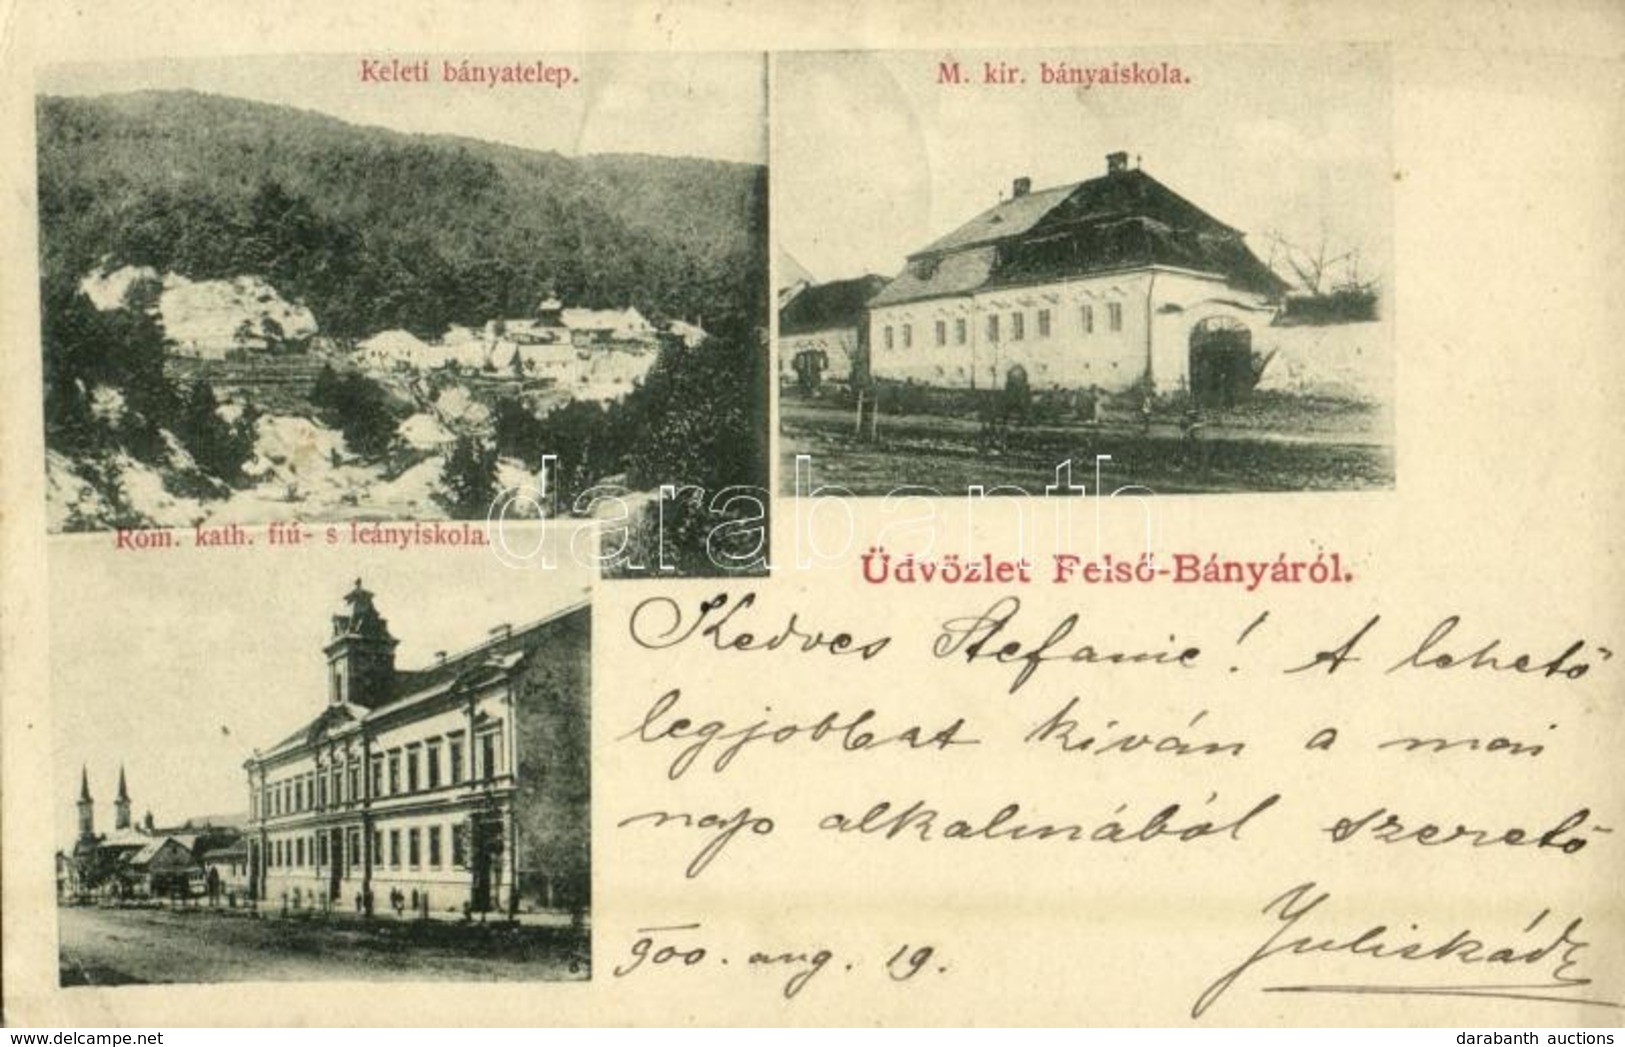 Keleti bányatelep.
M. kir. bányaiskola.
Róm. kath. fiú- s leányiskola.
darabanth
Üdvözlet Felső-Bányáról.
Kedves Stefanie! A lehető
legjobbat kíván a mai
nap alkalmából szerető
Juliskád
900. aug. 19.
delcampe.net
darabanth auctions